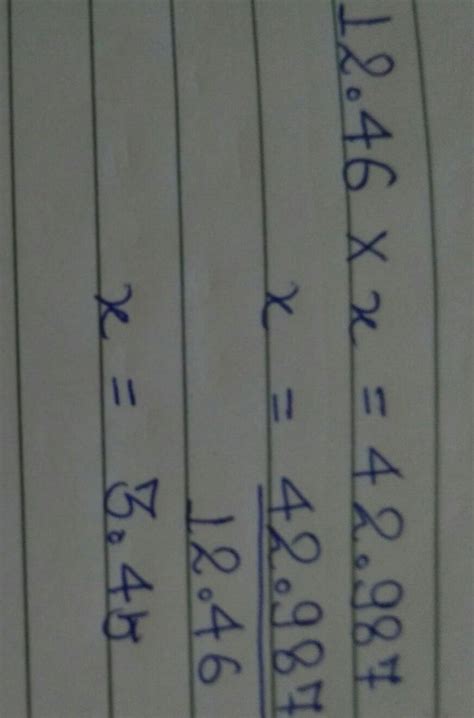 12.46 × x = 42.987
x = 42.987
12.46
x = 3.45